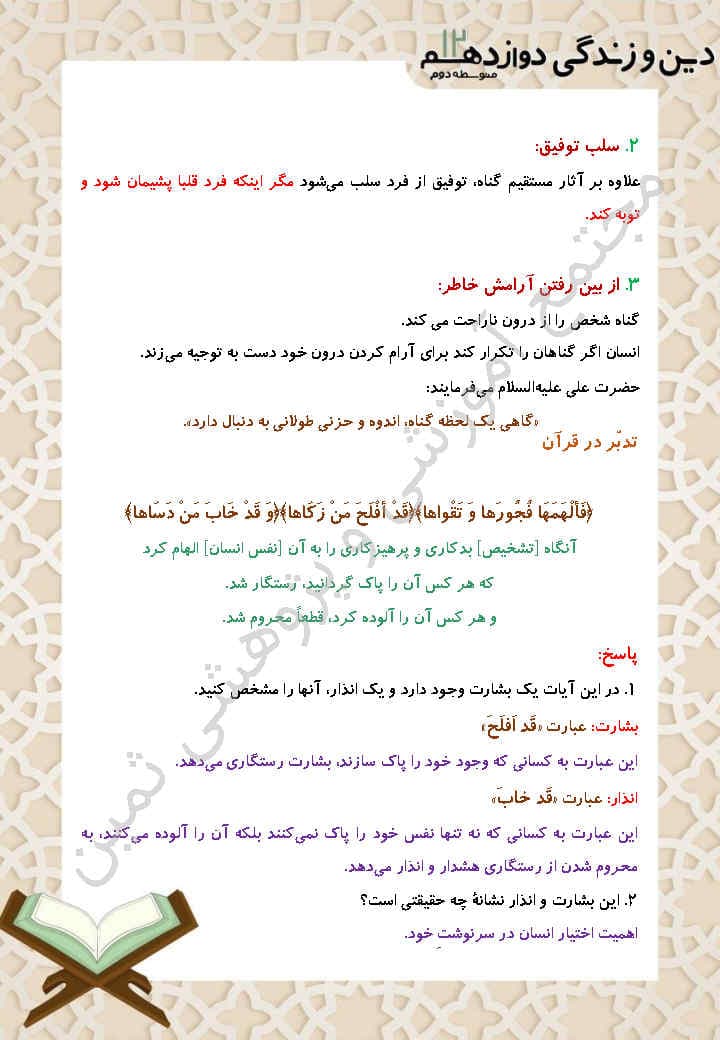 دین و زندگی دوازدهم ۱۲
متوسطه دوم
۲. سلب توفیق:
علاوه بر آثار مستقیم گناه، توفیق از فرد سلب می‌شود مگر اینکه فرد قلبا پشیمان شود و
توبه کند.
۳. از بین رفتن آرامش خاطر:
گناه شخص را از درون ناراحت می کند.
انسان اگر گناهان را تکرار کند برای آرام کردن درون خود دست به توجیه می‌زند.
حضرت علی علیه‌السلام می‌فرمایند:
«گاهی یک لحظه گناه، اندوه و حزنی طولانی به دنبال دارد».
تدبّر در قرآن
﴿فَأَلْهَمَهَا فُجُورَها وَ تَقْواها﴾﴿قَدْ أَفْلَحَ مَنْ زَكَاها﴾﴿وَ قَدْ خَابَ مَنْ دَسَاها﴾
آنگاه [تشخیص] بدکاری و پرهیزکاری را به آن [نفس انسان] الهام کرد
که هر کس آن را پاک گردانید، رستگار شد.
و هر کس آن را آلوده کرد، قطعاً محروم شد.
پاسخ:
۱. در این آیات یک بشارت وجود دارد و یک انذار، آنها را مشخص کنید.
بشارت: عبارت «قَد اَفلَحَ»
این عبارت به کسانی که وجود خود را پاک سازند، بشارت رستگاری می‌دهد.
انذار: عبارت «قَد خابَ»
این عبارت به کسانی که نه تنها نفس خود را پاک نمی‌کنند بلکه آن را آلوده می‌کنند، به
محروم شدن از رستگاری هشدار و انذار می‌دهد.
۲. این بشارت و انذار نشانهٔ چه حقیقتی است؟
اهمیت اختیار انسان در سرنوشت خود.
مجتمع آموزشی و پژوهشی ثمین